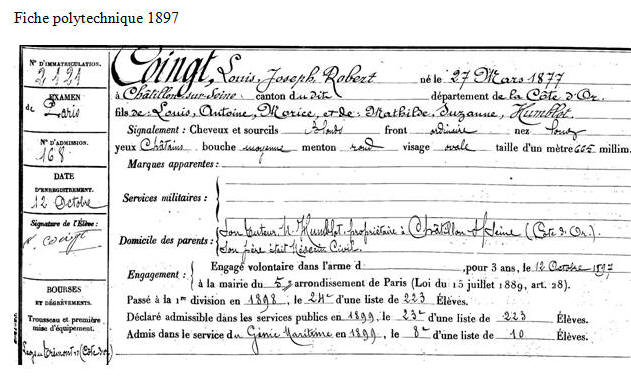 Fiche polytechnique 1897
N° D'IMMATRICULATION.
2121
EXAMEN
de Paris
N° D'ADMISSION.
168
DATE
D'ENREGISTREMENT.
12 Octobre
Signature de l'Élève:
Coingt
BOURSES
ET DÉGRÈVEMENTS.
Trousseau et première
mise d'équipement.
(Côte d'Or)
Coingt, Louis, Joseph, Robert né le 27 Mars 1877
à Châtillon-sur-Seine canton du dit département de la Côte d'Or
fils de: Louis, Antoine, Morice, et de: Mathilde, Suzanne, Humblot.
Signalement: Cheveux et sourcils blonds front ordinaire nez long
yeux Châtains bouche moyenne menton rond visage ovale taille d'un mètre 665 millim.
Marques apparentes:
Services militaires:
Domicile des parents:
Son tuteur M. Humblot, propriétaire à Châtillon s/Seine (Côte d'Or).
Son père était Médecin Civil.
Engagement:
Engagé volontaire dans l'arme d , pour 3 ans, le 12 Octobre 1897
à la mairie du 5e arrondissement de Paris (Loi du 15 juillet 1889, art. 28).
Passé à la 1re division en 1898, le 24e d'une liste de 223 Élèves.
Déclaré admissible dans les services publics en 1899, le 23e d'une liste de 223 Élèves.
Admis dans le service du Génie Maritime en 1899, le 8e d'une liste de 10 Élèves.